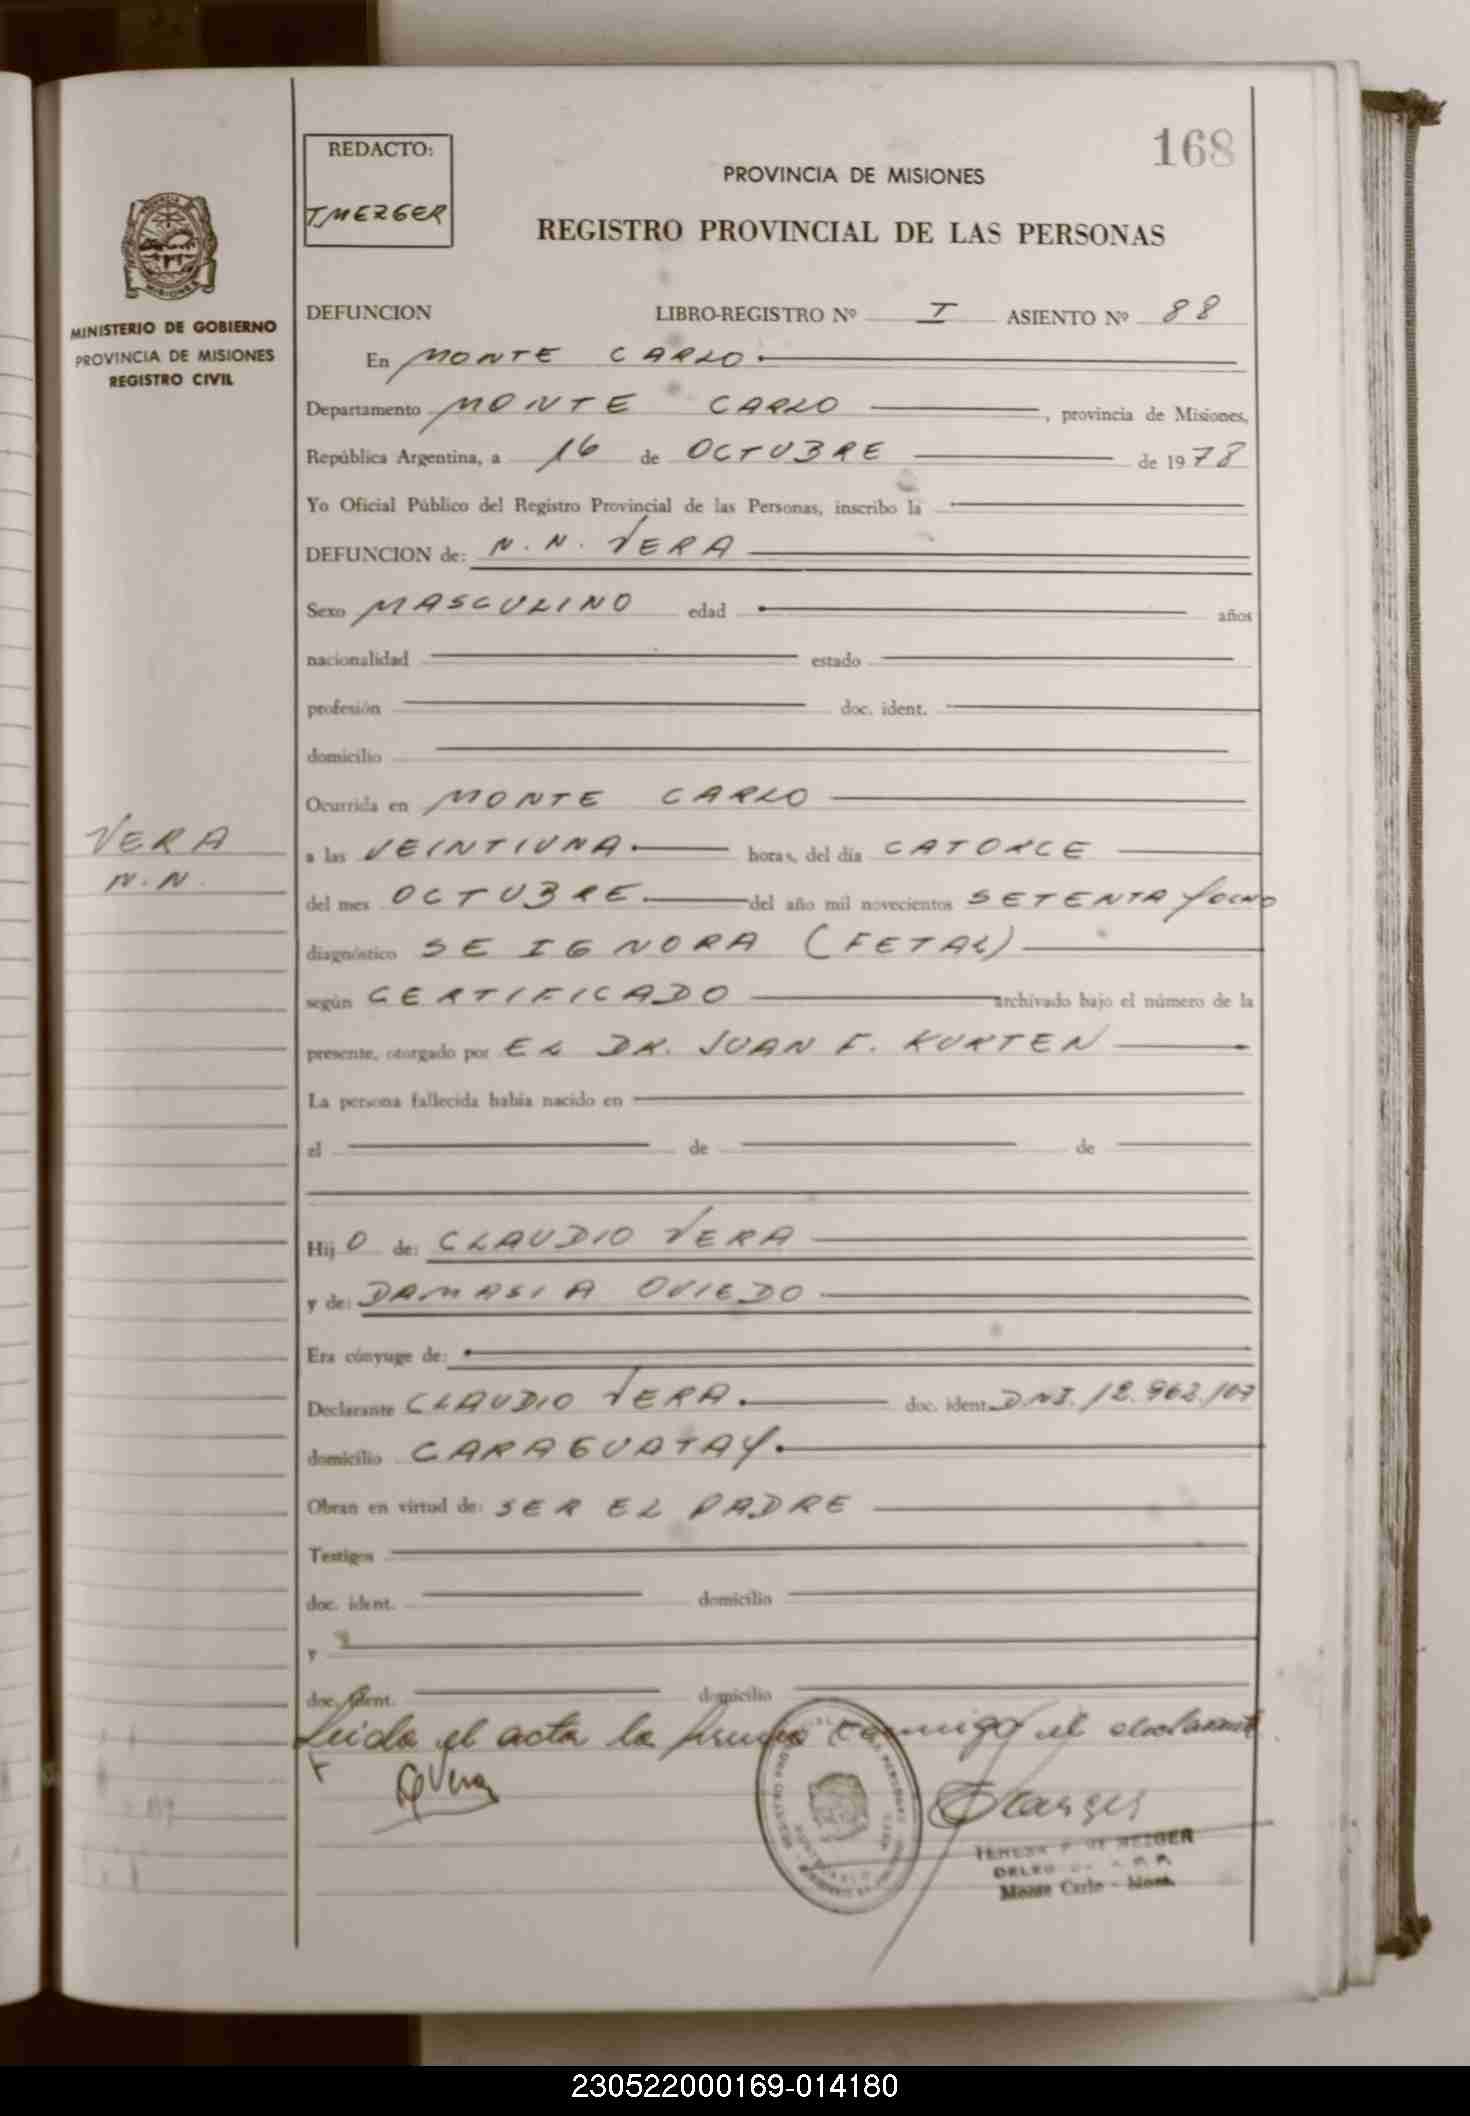 168
REDACTO:
TMERGER
PROVINCIA DE MISIONES
REGISTRO PROVINCIAL DE LAS PERSONAS
MINISTERIO DE GOBIERNO
PROVINCIA DE MISIONES
REGISTRO CIVIL
DEFUNCION LIBRO-REGISTRO Nº I ASIENTO Nº 88
En MONTE CARLO
Departamento MONTE CARLO, provincia de Misiones,
República Argentina, a 16 de OCTUBRE de 1978
Yo Oficial Público del Registro Provincial de las Personas, inscribo la
DEFUNCION de: N. N. VERA
Sexo MASCULINO edad años
nacionalidad estado
profesión doc. ident.
domicilio
Ocurrida en MONTE CARLO
VERA
N.N.
a las VEINTIUNA horas, del día CATORCE
del mes OCTUBRE del año mil novecientos SETENTA Y OCHO
diagnóstico SE IGNORA (FETAL)
según CERTIFICADO archivado bajo el número de la
presente, otorgado por EL DR. JUAN F. KURTEN
La persona fallecida había nacido en
el de de
Hij O de: CLAUDIO VERA
y de: DAMASIA OVIEDO
Era cónyuge de:
Declarante CLAUDIO VERA doc. ident. D.N.I. 12.962.107
domicilio CARAGUATAY
Obran en virtud de: SER EL PADRE
Testigos
doc. ident. domicilio
y
doc. ident. domicilio
Leida el acta la firma conmigo el declarante
Vera
Monte Carlo - Mnes.
230522000169-014180